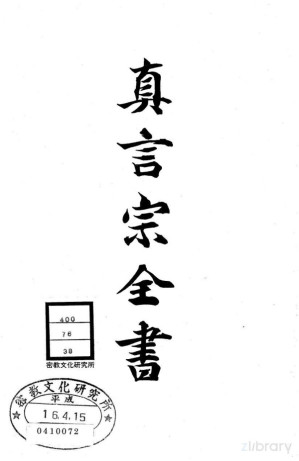 真言宗全書
400
76
38
密教文化研究所
密教文化研究所
平成
16.4.15
0410072
zlibrary